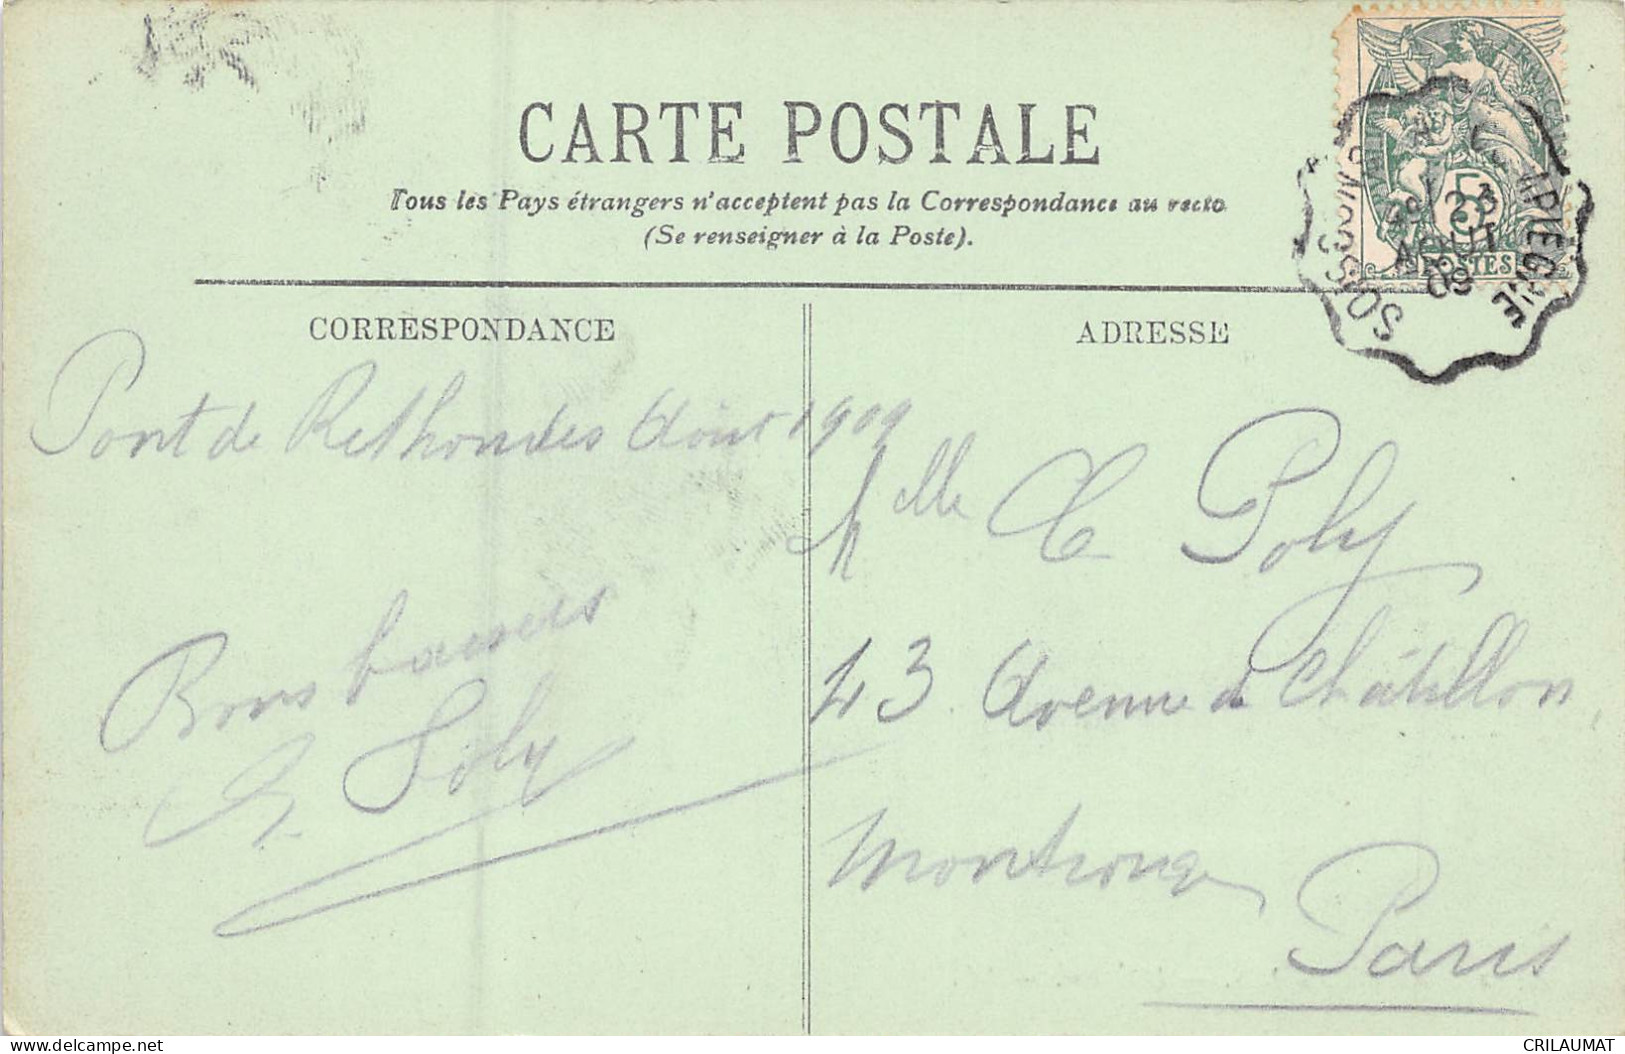 CARTE POSTALE
Tous les Pays étrangers n'acceptent pas la Correspondance au recto
(Se renseigner à la Poste).
SOISSONS À COMPIÈGNE
23
AOUT
09
5
POSTES
CORRESPONDANCE
Pont de Rethondes Août 1909
Bons baisers
Poly
ADRESSE
Melle Poly
43 Avenue de Châtillon
Montrouge
Paris
delcampe.net
CRILAUMAT